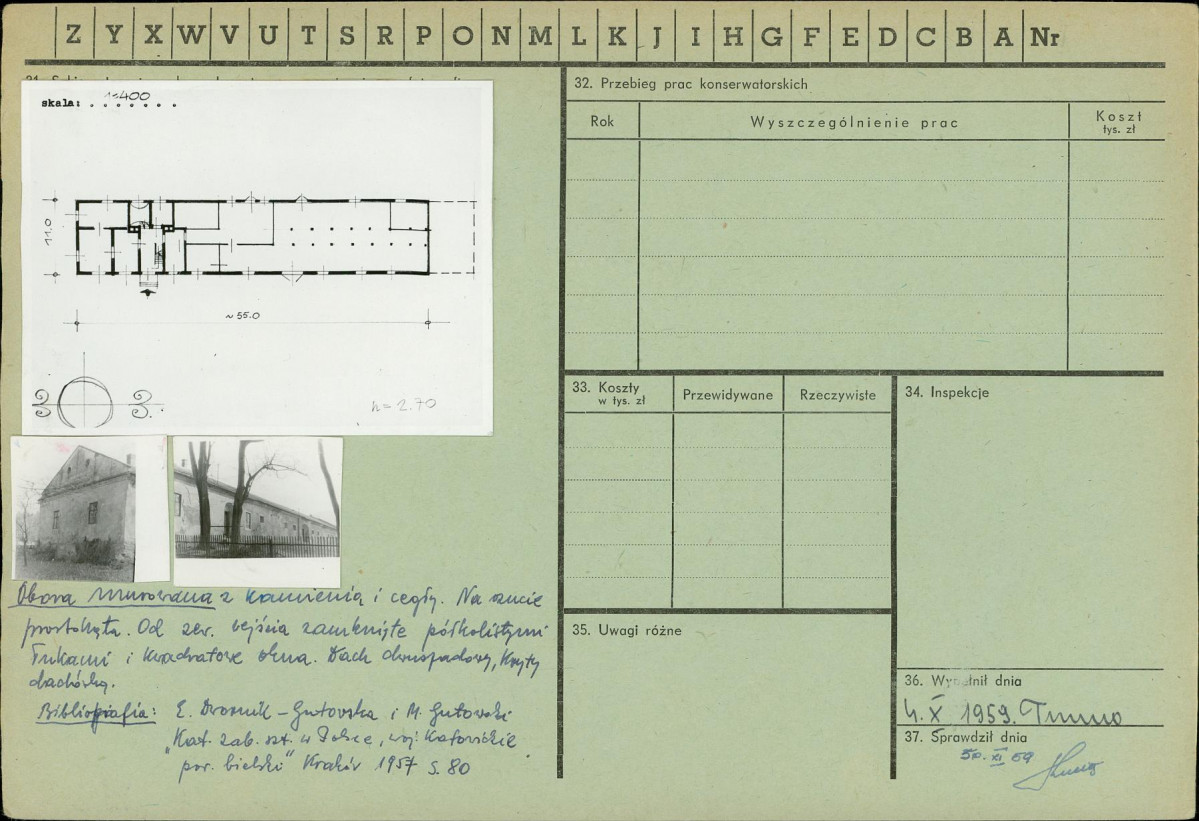 Z Y X W V U T S R P O N M L K J I H G F E D C B A Nr
skala: 1:400
11.0
~ 55.0
h = 2.70
Obora murowana z kamienia i cegły. Na rzucie
prostokąta. Od zew. wejścia zamknięte półkolistymi
łukami i kwadratowe okna. Dach dwuspadowy, kryty
dachówką.
Bibliografia: E. Dwornik-Gutowska i M. Gutowski
"Kat. zab. szt. w Polsce, woj. Katowickie
pow. bielski" Kraków 1957 s. 80
32. Przebieg prac konserwatorskich
Rok
Wyszczególnienie prac
Koszt
tys. zł
33. Koszty
w tys. zł
Przewidywane
Rzeczywiste
34. Inspekcje
35. Uwagi różne
36. Wypełnił dnia
4. X 1959.
37. Sprawdził dnia
30. XI 59